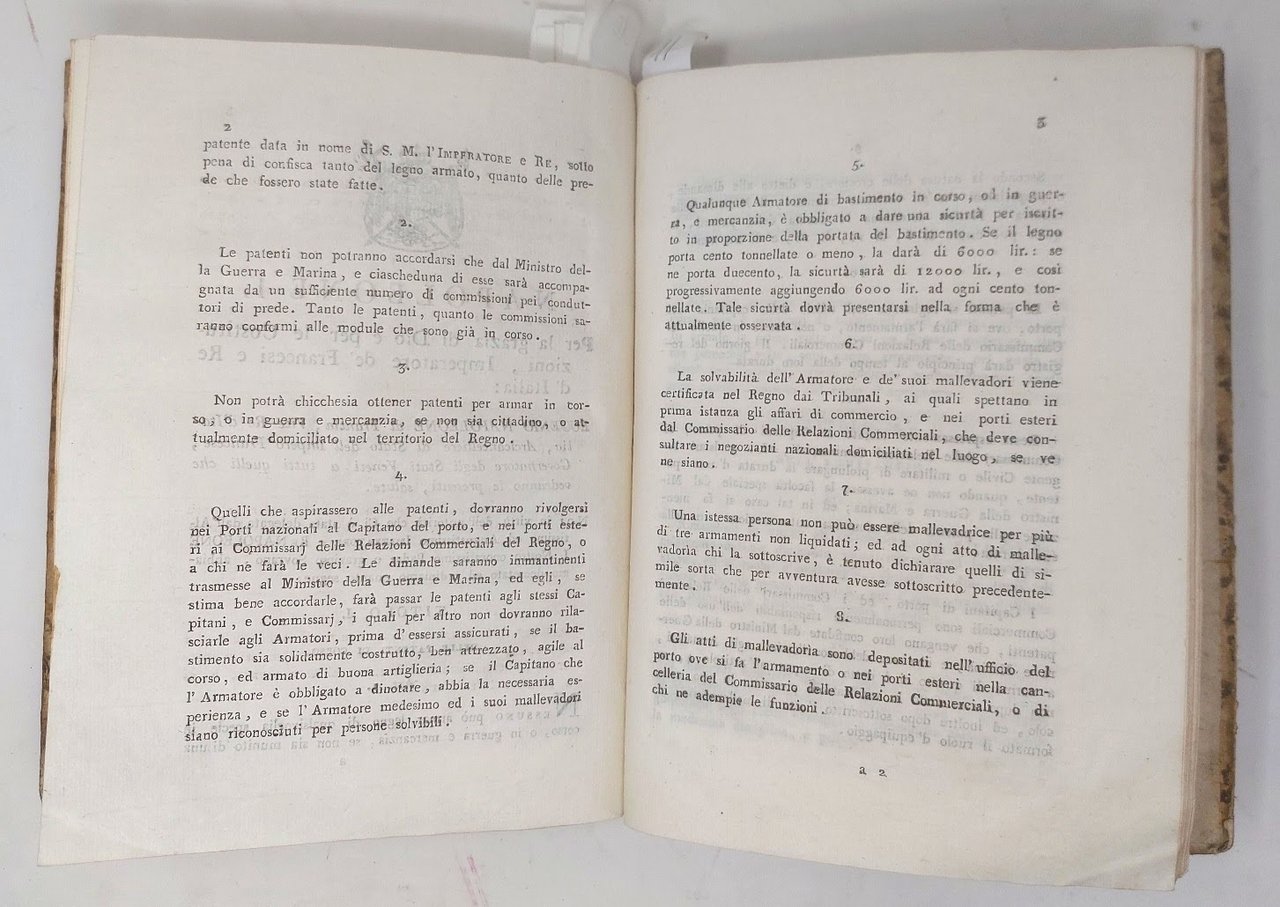 11
2
patente data in nome di S. M. l'IMPERATORE e RE, sotto
pena di confisca tanto del legno armato, quanto delle pre-
de che fossero state fatte.
2.
Le patenti non potranno accordarsi che dal Ministro del-
la Guerra e Marina, e ciascheduna di esse sarà accompa-
gnata da un sufficiente numero di commissioni pei condut-
tori di prede. Tanto le patenti, quanto le commissioni sa-
ranno conformi alle module che sono già in corso.
3.
Non potrà chicchesia ottener patenti per armar in cor-
so, o in guerra e mercanzia, se non sia cittadino, o at-
tualmente domiciliato nel territorio del Regno.
4.
Quelli che aspirassero alle patenti, dovranno rivolgersi
nei Porti nazionali al Capitano del porto, e nei porti este-
ri ai Commissarj delle Relazioni Commerciali del Regno, o
a chi ne farà le veci. Le dimande saranno immantinenti
trasmesse al Ministro della Guerra e Marina, ed egli, se
stima bene accordarle, farà passar le patenti agli stessi Ca-
pitani, e Commissarj, i quali per altro non dovranno rila-
sciarle agli Armatori, prima d'essersi assicurati, se il ba-
stimento sia solidamente costrutto, ben attrezzato, agile al
corso, ed armato di buona artiglieria; se il Capitano che
l'Armatore è obbligato a dinotare, abbia la necessaria es-
perienza, e se l'Armatore medesimo ed i suoi mallevadori
siano riconosciuti per persone solvibili.
3
5.
Qualunque Armatore di bastimento in corso, od in guer-
ra, e mercanzia, è obbligato a dare una sicurtà per iscrit-
to in proporzione della portata del bastimento. Se il legno
porta cento tonnellate o meno, la darà di 6000 lir.: se
ne porta duecento, la sicurtà sarà di 12000 lir., e così
progressivamente aggiungendo 6000 lir. ad ogni cento ton-
nellate. Tale sicurtà dovrà presentarsi nella forma che è
attualmente osservata.
6.
La solvabilità dell'Armatore e de' suoi mallevadori viene
certificata nel Regno dai Tribunali, ai quali spettano in
prima istanza gli affari di commercio, e nei porti esteri
dal Commissario delle Relazioni Commerciali, che deve con-
sultare i negozianti nazionali domiciliati nel luogo, se ve
ne siano.
7.
Una istessa persona non può essere mallevadrice per più
di tre armamenti non liquidati; ed ad ogni atto di malle-
vadorìa chi la sottoscrive, è tenuto dichiarare quelli di si-
mile sorta che per avventura avesse sottoscritto precedente-
mente.
8.
Gli atti di mallevadorìa sono depositati nell'ufficio del
porto ove si fa l'armamento o nei porti esteri nella can-
celleria del Commissario delle Relazioni Commerciali, o di
chi ne adempie le funzioni.
a 2